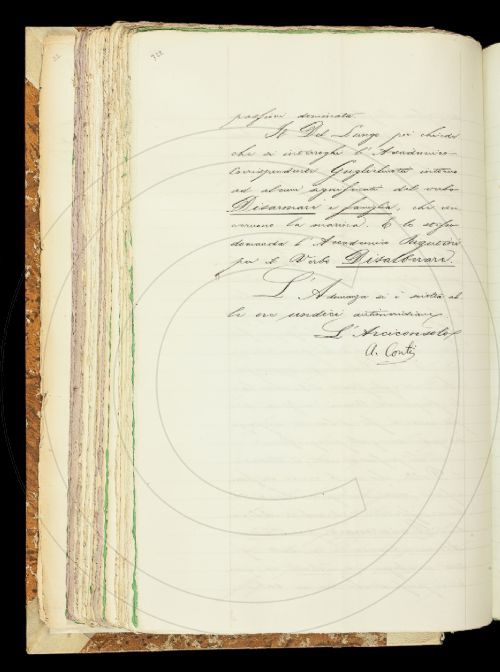 passione dominata.
Il Del Lungo poi chiede
che si interroghi l'Accademico
Corrispondente Guglielmotti intorno
ad alcuni significati del verbo
Disarmare e famiglia, che con
cernono la marina. E lo stesso
domanda l'Accademico Rigutini
per il Verbo Disalberare.
L'Adunanza si è sciolta al
le ore undici antimeridiane
L'Arciconsolo
A. Conti